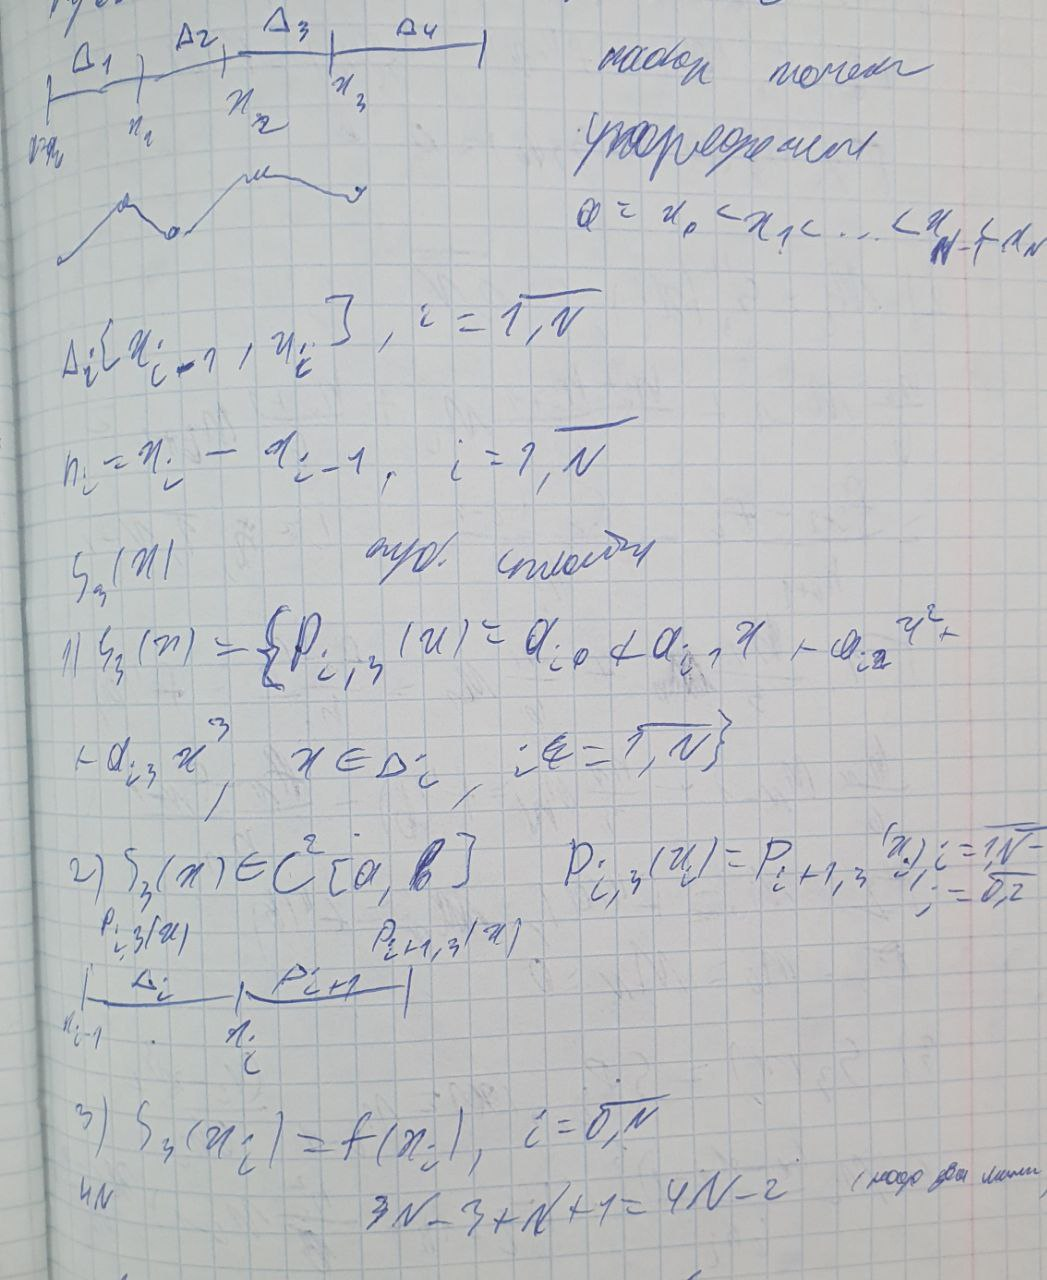 Δ1 Δ2 Δ3 Δ4
x1 x2 x3
набор точек
a = x0 < x1 < ... < xN-1 < xN
Δi [xi-1, xi], i = 1,N
hi = xi - xi-1, i = 1,N
S3(x) куб. сплайн
1) S3(x) = {Pi,3(x) = ai0 + ai1 x + ai2 x² +
+ ai3 x³, x ∈ Δi, i = 1,N}
2) S3(x) ∈ C²[a, b] Pi,3(xi) = Pi+1,3(xi), i = 1,N-
j = 0,2
Pi,3(x) Pi+1,3(x)
Δi Δi+1
xi-1 xi
3) S3(xi) = f(xi), i = 0,N
4N 3N - 3 + N + 1 = 4N - 2 (надо два